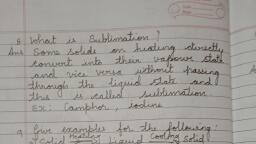 8 What is Sublimation?
Ans Some solids on heating directly
convert into their vapour state
and vice versa without passing
through the liquid state and
this is called sublimation.
Ex: Camphor, iodine
9 Give examples for the following:
Solid Heating Liquid Cooling Solid